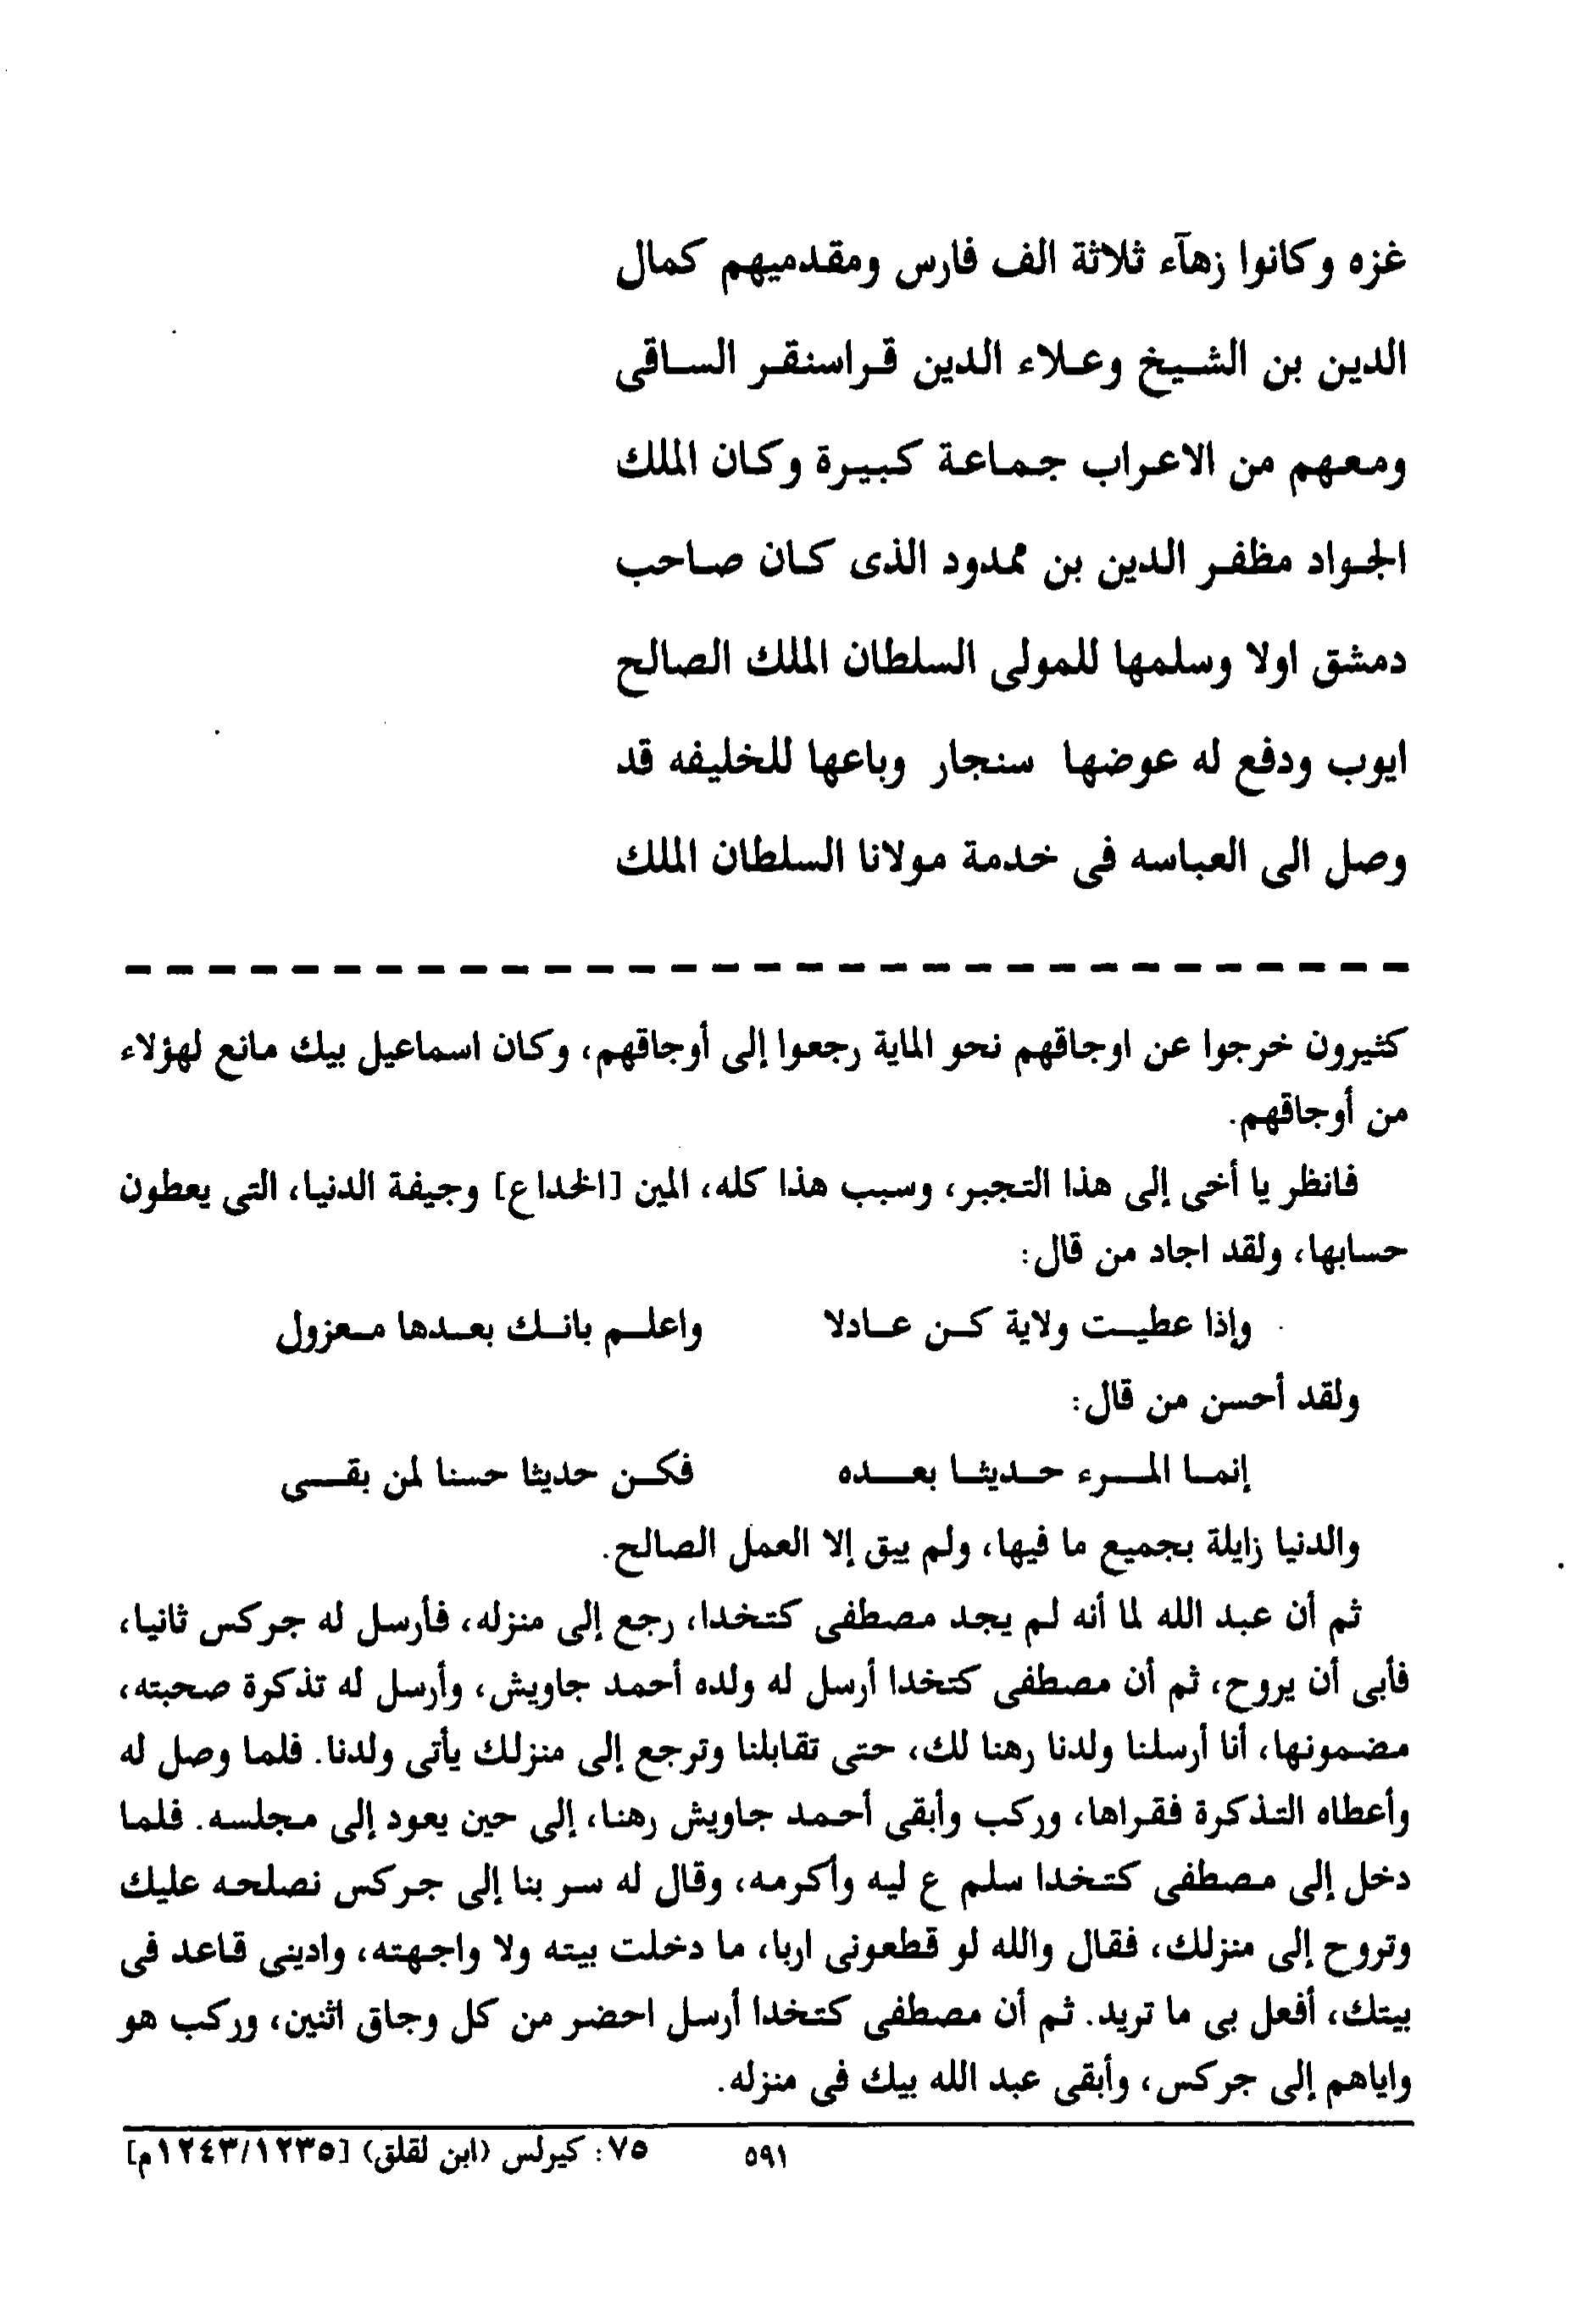 غزه وكانوا زهآء ثلاثة الف فارس ومقدميهم كمال
الدين بن الشيخ وعلاء الدين قراسنقر الساقى
ومعهم من الاعراب جماعة كبيرة وكان الملك
الجواد مظفر الدين بن ممدود الذى كان صاحب
دمشق اولا وسلمها للمولى السلطان الملك الصالح
ايوب ودفع له عوضها سنجار وباعها للخليفه قد
وصل الى العباسه فى خدمة مولانا السلطان الملك
كثيرون خرجوا عن اوجاقهم نحو الماية رجعوا إلى أوجاقهم، وكان اسماعيل بيك مانع لهؤلاء
من أوجاقهم.
فانظر يا أخى إلى هذا التجبر، وسبب هذا كله، المين [الخداع] وجيفة الدنيا، التى يعطون
حسابها، ولقد اجاد من قال:
وإذا عطيت ولاية كن عادلا واعلم بانك بعدها معزول
ولقد أحسن من قال:
إنما المرء حديثا بعده فكن حديثا حسنا لمن بقى
والدنيا زايلة بجميع ما فيها، ولم يبق إلا العمل الصالح.
ثم أن عبد الله لما أنه لم يجد مصطفى كتخدا، رجع إلى منزله، فأرسل له جركس ثانيا،
فأبى أن يروح، ثم أن مصطفى كتخدا أرسل له ولده أحمد جاويش، وأرسل له تذكرة صحبته،
مضمونها، أنا أرسلنا ولدنا رهنا لك، حتى تقابلنا وترجع إلى منزلك يأتى ولدنا. فلما وصل له
وأعطاه التذكرة فقراها، وركب وأبقى أحمد جاويش رهنا، إلى حين يعود إلى مجلسه. فلما
دخل إلى مصطفى كتخدا سلم ع ليه وأكرمه، وقال له سر بنا إلى جركس نصلحه عليك
وتروح إلى منزلك، فقال والله لو قطعونى اربا، ما دخلت بيته ولا واجهته، وادينى قاعد فى
بيتك، أفعل بى ما تريد. ثم أن مصطفى كتخدا أرسل احضر من كل وجاق اثنين، وركب هو
واياهم إلى جركس، وأبقى عبد الله بيك فى منزله.
٥٩١ ٧٥: كيرلس (ابن لقلق) [١٢٤٣/١٢٣٥م]